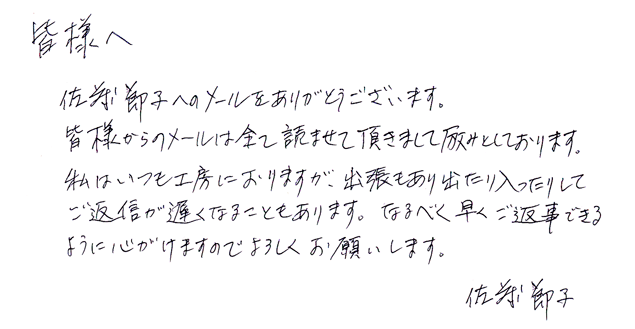 皆様へ
佐藤節子へのメールをありがとうございます。
皆様からのメールは全て読ませて頂きまして励みとしております。
私はいつも工房におりますが、出張もあり出たり入ったりして
ご返信が遅くなることもあります。なるべく早くご返事できる
ように心がけますのでよろしくお願いします。
佐藤節子